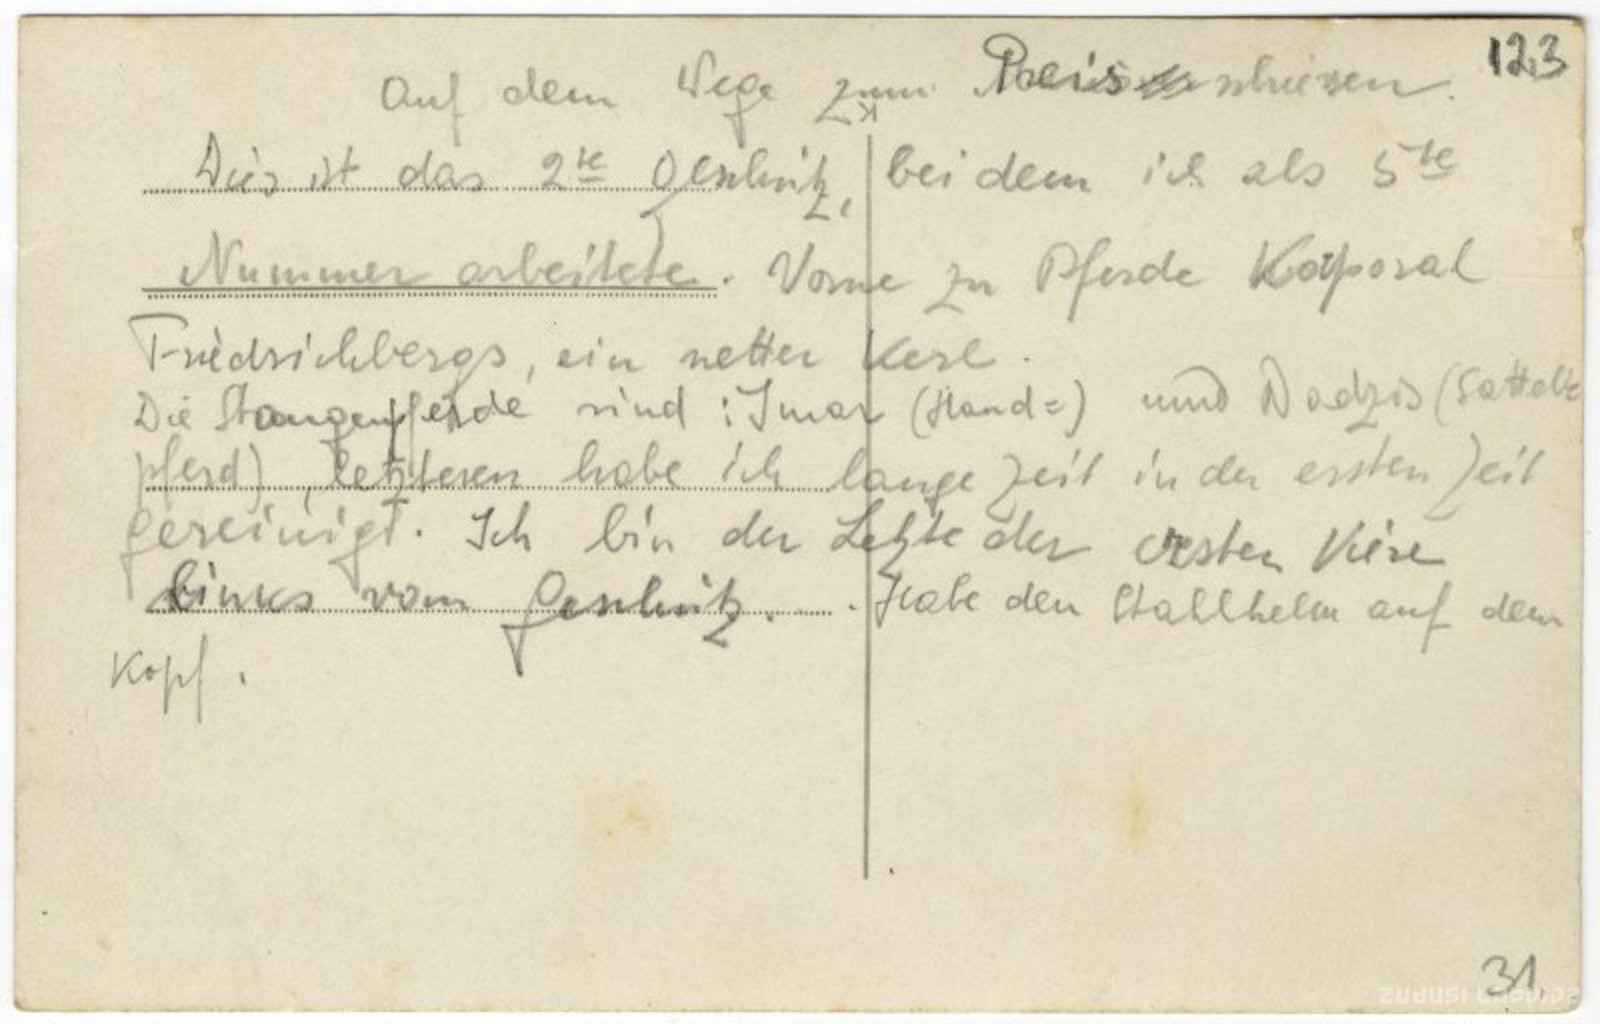 123
Auf dem Wege zum Preisschiessen.
Dies ist das 2te Geschütz, bei dem ich als 5te
Nummer arbeitete. Vorne zu Pferde Korporal
Friedrichbergs, ein netter Kerl.
Die Stangenpferde sind: Imar (Hand=) und Dadzis (Sattel=
pferd), letzteren habe ich lange Zeit in der ersten Zeit
gereinigt. Ich bin der Letzte der ersten
links vom Geschütz. Habe den Stahlhelm auf dem
Kopf.
31.
ZUDUSI LATVIJA